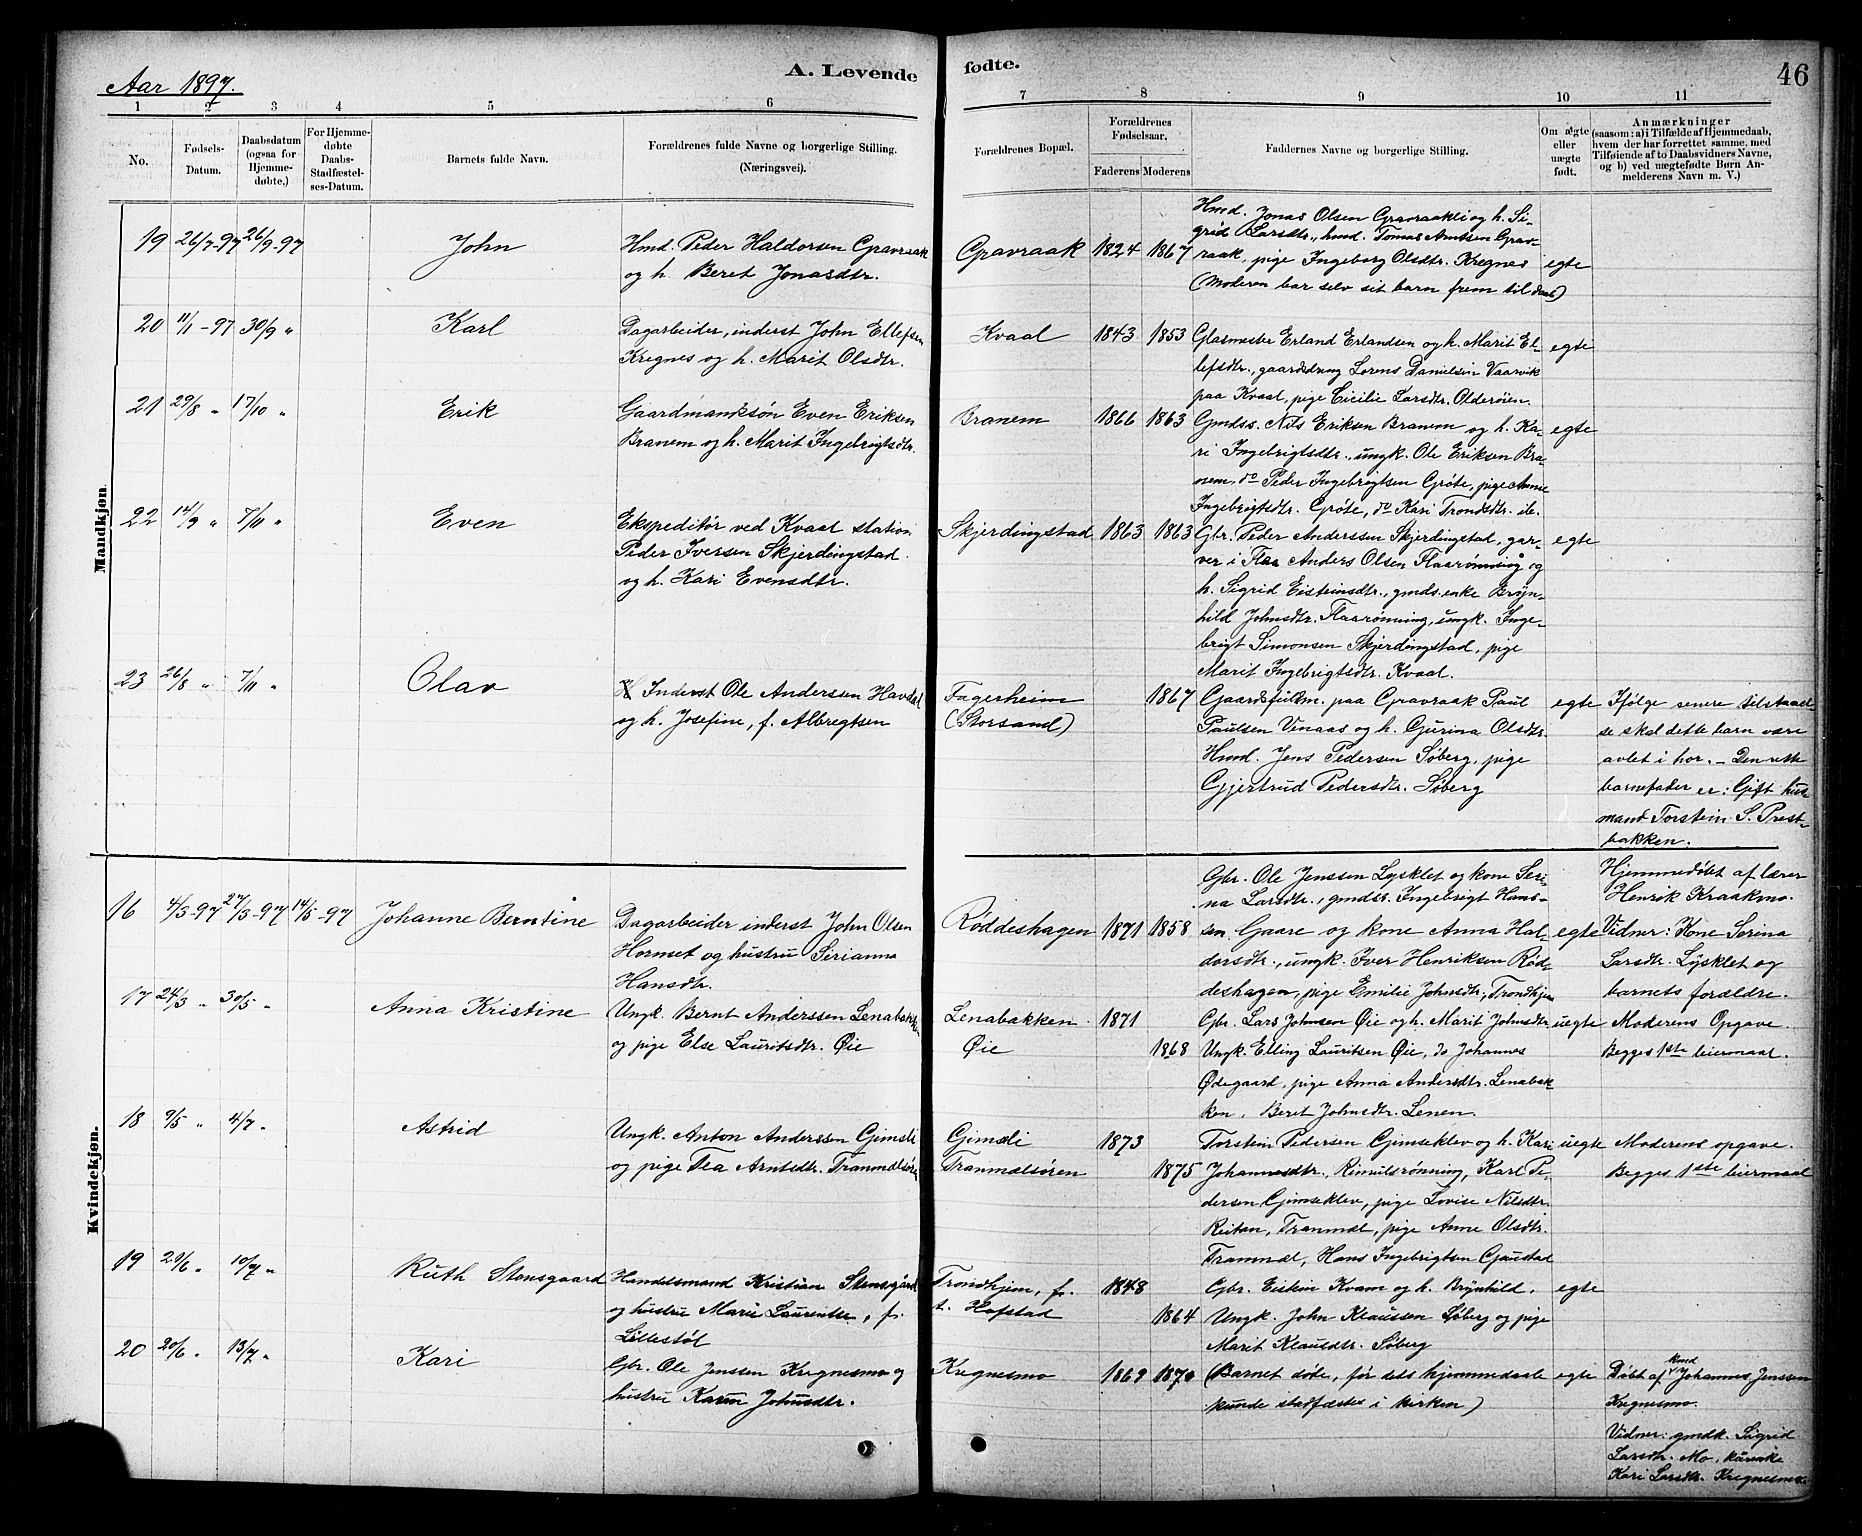 Aar 1897.
A. Levende
fødte.
46
1 2 3 4 5 6 7 8 9 10 11
No.
Fødsels-
Datum.
Daabsdatum
(ogsaa for
Hjemme-
døbte,)
For Hjemme-
døbte
Daabs-
Stadfæstel-
ses-Datum.
Barnets fulde Navn.
Forældrenes fulde Navne og borgerlige Stilling.
(Næringsvei).
Forældrenes Bopæl.
Forældrenes
Fødselsaar.
Faderens Moderens
Faddernes Navne og borgerlige Stilling.
Om ægte
eller
uægte
født.
Anmærkninger
(saasom: a) i Tilfælde af Hjemmedaab,
hvem der har forrettet samme, med
Tilføiende af to Daabsvidners Navne,
og b) ved uægtefødte Børn An-
melderens Navn m. V.)
Mandkjøn.
19 26/7-97 26/9-97 John
Hmd. Peder Haldorsen Gravraak
og h. Beret Jonasdtr.
Gravraak 1824 1867
Hmd. Jonas Olsen Gravraakli og h. Si-
grid Larsdtr., hmd. Tomas Arntsen Grav-
raak, pige Ingeborg Olsdtr. Kregnes
(Moderen bar selv sit barn frem til daab)
egte
20 11/1-97 30/9 " Karl
Dagarbeider, inderst John Ellefsen
Kregnes og h. Marit Olsdtr.
Kvaal 1843 1853
Glasmester Erland Erlandsen og h. Marit El-
lefsdtr., gaardsdreng Lorens Danielsen Vaarvik
paa Kvaal, pige Cicilie Larsdtr. Olderøien.
egte
21 29/8 " 17/10 " Erik
Gaardmandssøn Even Eriksen
Branem og h. Marit Ingebrigtsdtr.
Branem 1866 1863
Gmdss. Nils Eriksen Branem og h. Ka-
ri Ingebrigtsdtr., ungk. Ole Eriksen Bra-
nem, do Peder Ingebrigtsen Grøte, pige Anne
Ingebrigtsdtr. Grøte, do Kari Trondsdtr. ib.
egte
22 14/9 " 7/11 " Even
Ekspeditør ved Kvaal station
Peder Iversen Skjerdingstad
og h. Kari Evensdtr.
Skjerdingstad 1863 1863
Gbr. Peder Anderssen Skjerdingstad, gar-
ver i Flaa Anders Olsen Flaarønning og
h. Sigrid Eisteinsdtr., gmds. enke Brøn-
hild Johnsdtr. Flaarønning, ungk. Inge-
brigt Simonsen Skjerdingstad, pige
Marit Ingebrigtsdtr. Kvaal.
egte
23 26/8 " 7/11 " Olav
Inderst Ole Anderssen Havdal
og h. Josefine, f. Albregtsen
Fagerheim
(Storsand)
1867
Gaardsfuldm. paa Gravraak Paul
Paulsen Vinaas og h. Gurina Olsdtr.
Hmd. Jens Pedersen Søberg, pige
Gjertrud Pedersdtr. Søberg
egte
Ifølge senere tilstaael-
se skal dette barn være
avlet i hor. - Den rette
barnefader er: Gift hus-
mand Torstein S. Prest-
bakken.
Kvindekjøn.
16 4/3-97 27/3-97 14/5-97 Johanne Berntine
Dagarbeider inderst John Olsen
Hornset og hustru Serianna
Hansdtr.
Røddeshagen 1871 1858
Gbr. Ole Jenssen Lysklet og kone Seri-
na Larsdtr., gmdss. Ingebrigt Hans-
sen Gaare og kone Anna Hal-
dorsdtr., ungk. Iver Henriksen Rød-
deshagen, pige Emilie Johnsdtr, Trondhjem
egte
Hjemmedøbt af lærer
Henrik Kraakmo.
Vidner: Kone Serina
Larsdtr. Lysklet og
barnets forældre.
17 24/3 " 30/5 " Anna Kristine
Ungk. Bernt Anderssen Lenabakken
og pige Else Lauritsdtr. Øie
Lenabakken 1871
Øie 1868
Gbr. Lars Johnsen Øie og h. Marit Johnsdtr
Ungk. Elling Lauritsen Øie, do Johannes
Ødegaard, pige Anna Andersdtr. Lenabak-
ken, Beret Johnsdtr. Lenen.
uegte
Moderens Opgave.
Begges 1ste leiermaal.
18 9/5 " 4/7 " Astrid
Ungk. Anton Anderssen Gimsli
og pige Tea Arntsdtr. Tranmælsøren
Gimsli 1873
Tranmælsøren 1875
Torstein Pedersen Gimseklev og h. Kari
Johannesdtr. Rimulsrønning, Karl Pe-
dersen Gimseklev, pige Lovise Nilsdtr.
Reitan, Tranmæl, pige Anne Olsdtr.
Tranmæl, Hans Ingebrigtsen Gaustad
uegte
Moderens opgave.
Begges 1ste leiermaal
19 29/6 " 10/7 " Ruth Stensgaard
Handelsmand Kristian Stensgård
og hustru Marie Laurentse, f.
Lillestøl
Trondhjem, f.
t. Hofstad
1848
1864
Gbr. Eistein Kvam og h. Brynhild.
Ungk. John Klaussen Søberg og pige
Marit Klausdtr. Søberg
egte
20 20/6 " 13/7 " Kari
Gbr. Ole Jenssen Kregnesmo og
hustru Karen Johnsdtr.
Kregnesmo 1869 1870
(Barnet døde, før dets hjemmedaab
kunde stadfæstes i kirken)
egte
Døbt af kmd Johannes Jenssen
Kregnesmo.
Vidner: gmdk. Sigrid
Larsdtr. Mo,
Kari Larsdtr. Kregnesmo.